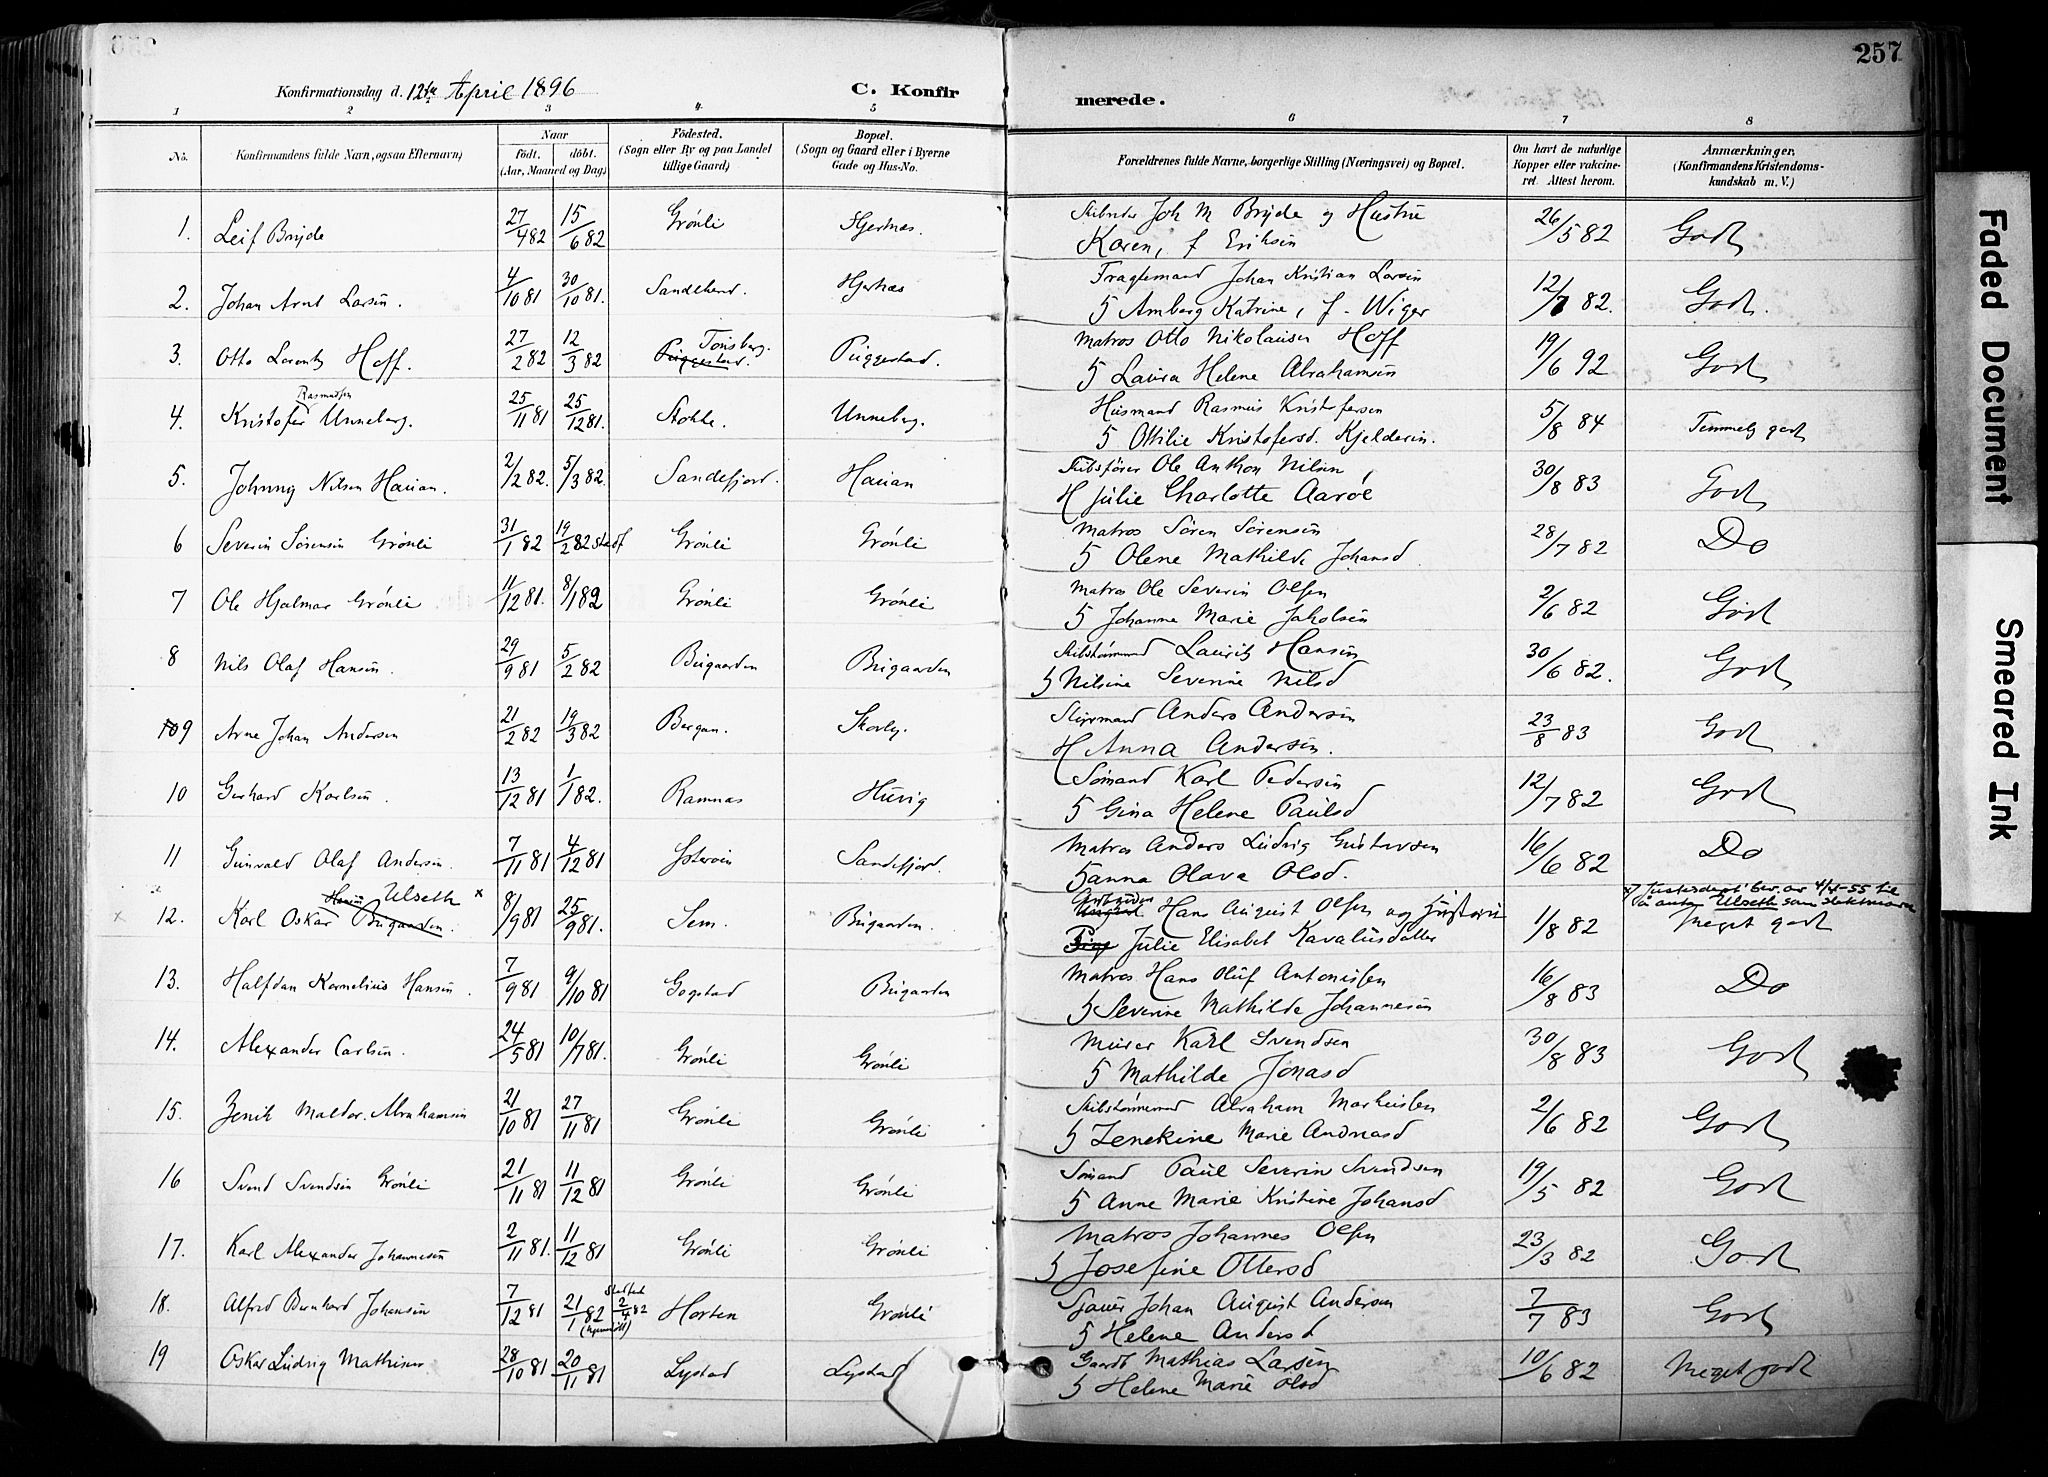 257
Konfirmationsdag d. 12te April 1896 C. Konfirmerede.
1 2 3 4 5 6 7 8
No. Konfirmandens fulde Navn, ogsaa Efternavn) Naar født. døbt. (Aar, Maaned og Dag) Födested. (Sogn eller By og paa Landet tillige Gaard) Bopæl. (Sogn og Gaard eller i Byerne Gade og Hus-No. Forældrenes fulde Navne, borgerlige Stilling (Næringsvei) og Bopæl. Om havt de naturlige Kopper eller vakcineret. Attest herom. Anmærkninger, (Konfirmandens Kristendomskundskab m. V.)
1. Leif Bryde 27/4 82 15/6 82 Grönli Hjertnes. Skibsreder Joh M Bryde og Hustru
Karen, f Eriksen 26/5 82 Godt
2. Johan Arnt Larsen. 4/10 81 30/10 81. Sandeherd. Hjertnes Fragtemand Johan Kristian Larsen
5 Amberg Katrine, f. Wiger 12/7 82. Godt.
3. Otto Lorentz Hoff. 27/2 82 12/3 82 Tønsberg. Puggestad. Puggestad. Matros Otto Nikolaisen Hoff
5 Laura Helene Abrahamsen 19/6 92 Godt
4. Kristofer Rasmussen Unneberg. 25/11 81 25/12 81. Stokke. Unneberg. Husmand Rasmus Kristofersen
5 Ottilie Kristofersd. Kjeldesen. 5/8 84 Temmelig godt
5. Johnny Nilsen Hauan. 2/2 82. 5/3 82. Sandefjord. Hauan Skibsfører Ole Anthon Nilsen
H Julie Charlotte Aaröe 30/8 83 Godt
6 Severin Sörensen Grönli 31/1 82 19/2 82 stadf Grönli Grönli Matros Sören Sörensen
5 Olene Mathilde Johansd. 28/7 82 Do
7 Ole Hjalmar Grönli 11/12 81. 8/1 82 Grönli Grönli Matros Ole Severin Olsen
5 Johanne Marie Jakobsen 2/6 82 Godt
8 Nils Olaf Hansen. 29/9 81 5/2 82 Bugaarden Bugaarden Skibstömmermd Lauritz Hansen
5 Nilsine Severine Nilsd 30/6 82. Godt
9 Arne Johan Andersen 21/2 82 19/3 82 Bergan. Skorby. Styrmand Anders Andersen
H Anna Andersen. 23/8 83 Godt
10 Gerhard Karlsen. 13/12 81 1/1 82. Ramnas Huvig Sömand Karl Pedersen
5 Gina Helene Paulsd 12/7 82 Godt
11 Gunvald Olaf Andersen. 7/11 81 4/12 81 Istervin Sandefjord. Matros Anders Ludvig Gustavsen
5 Anna Olava Olsd. 16/6 82 Do
x 12. Karl Oskar Hansen Bugaarden. Ulseth x 8/9 81 25/9 81. Sem. Bugaarden. Hans August Olsen og Hustru
Julie Elisabet Kavaliusdatter 1/8 82 x) Justisdept bev. av 4/4-55 til å anta Ulseth som slektsnavn
Meget godt
13. Halfdan Kornelius Hansen. 7/9 81 9/10 81 Gogstad Bugaarden Matros Hans Oluf Antonissen
5 Severine Mathilde Johannesen 16/8 83 Do
14. Alexander Carlsen. 24/5 81 10/7 81. Grönli Grönli Murer Karl Svendsen
5 Mathilde Jonasd 30/8 83 Godt
15. Zenik Maldor. Abrahamsen 21/10 81 27/11 81 Grönli Grönli Skibstömmermd Abraham Markussen
5 Zenekine Marie Andreasd 2/6 82 Godt
16 Svend Svendsen Grönli 21/11 81 11/12 81 Grönli Grönli Sömand Paul Severin Svendsen
5 Anne Marie Kristine Johansd 19/5 82 Godt
17. Karl Alexander Johannesen 2/11 81. 11/12 81 Grönli Grönli Matros Johannes Olsen
5 Josefine Ottersd 23/3 82 Godt
18. Alfred Bernhard Johansen 7/12 81 21/1 82 (hjemmedöbt) Stadfæst 2/4 82 Horten Grönli Sjauer Johan August Andersen
5 Helene Andersd 7/7 83 Godt
19 Oskar Ludvig Mathisen 28/10 81 20/11 81 Lystad Lystad Gaardb Mathias Larsen
5 Helene Marie Olsd 10/6 82 Meget godt
Faded Document
Smeared Ink